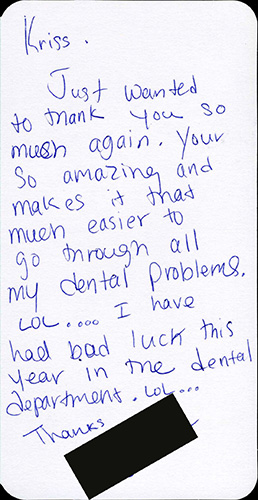 Kriss.
Just wanted
to thank you so
much again. Your
so amazing and
makes it that
much easier to
go through all
my dental problems.
LOL.... I have
had bad luck this
year in the dental
department. LOL...
Thanks